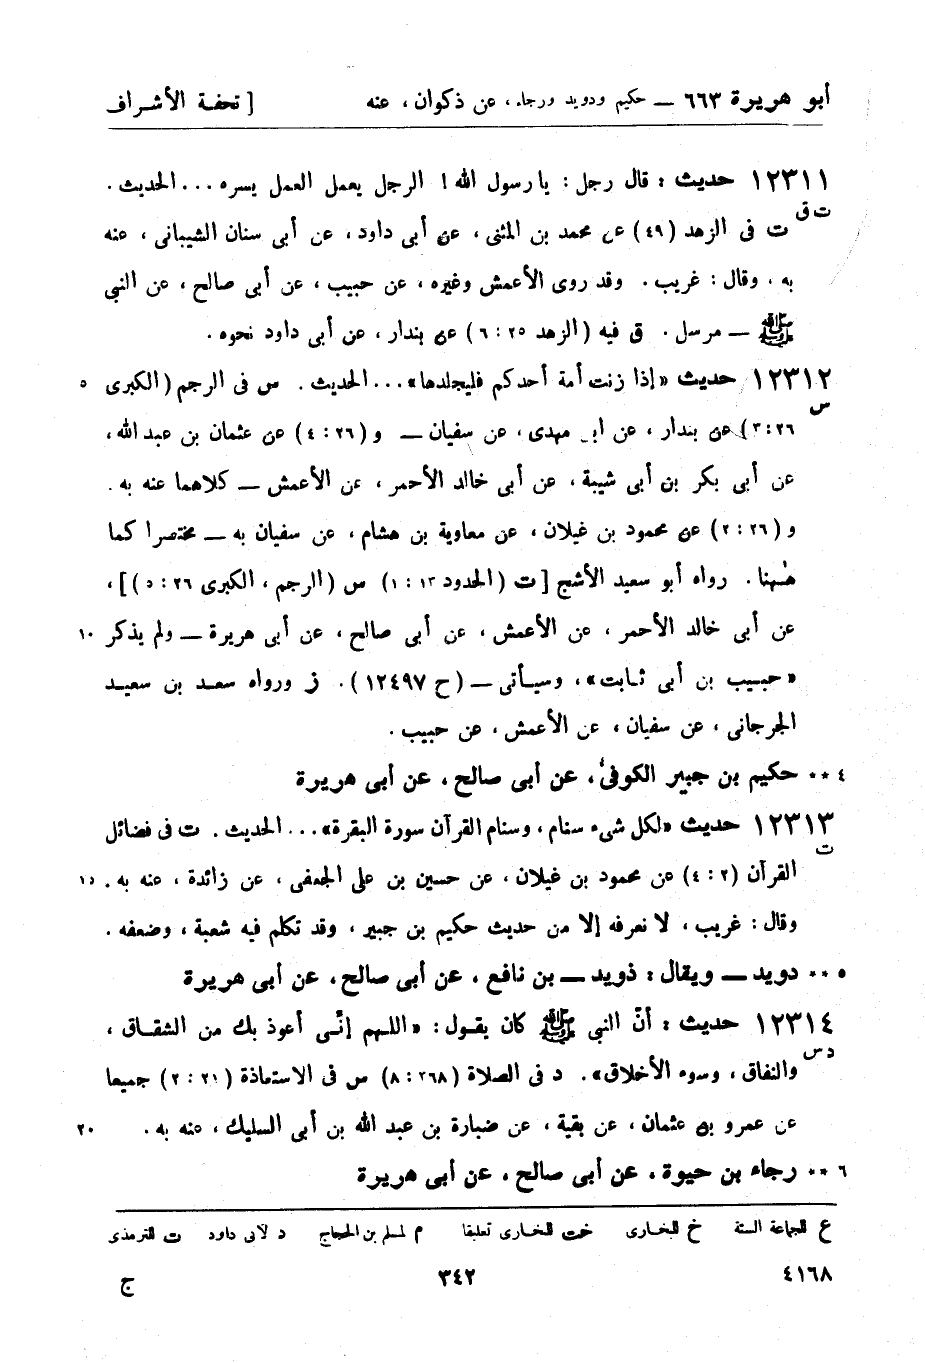 أبو هريرة ٦٦٣ — حكيم ودويد ورجاء، عن ذكوان، عنه [ تحفة الأشراف
١٢٣١١ حديث: قال رجل: يا رسول الله! الرجل يعمل العمل يسره... الحديث.
ت ق
ت فى الزهد (٤٩) عن محمد بن المثنى، عن أبى داود، عن أبى سنان الشيبانى، عنه
به. وقال: غريب. وقد روى الأعمش وغيره، عن حبيب، عن أبى صالح، عن النبى
ﷺ — مرسل. ق فيه (الزهد ٢٥: ٦) عن بندار، عن أبى داود نحوه.
١٢٣١٢ حديث «إذا زنت أمة أحدكم فليجلدها»... الحديث. س فى الرجم (الكبرى ٥
س
٢٦: ٣) عن بندار، عن ابن مهدى، عن سفيان — و (٢٦: ٤) عن عثمان بن عبد الله،
عن أبى بكر بن أبى شيبة، عن أبى خالد الأحمر، عن الأعمش — كلاهما عنه به.
و (٢٦: ٢) عن محمود بن غيلان، عن معاوية بن هشام، عن سفيان به — مختصرا كما
هٰهنا. رواه أبو سعيد الأشج [ت (الحدود ١٣: ١) س (الرجم، الكبرى ٢٦: ٥)]،
عن أبى خالد الأحمر، عن الأعمش، عن أبى صالح، عن أبى هريرة — ولم يذكر ١٠
«حبيب بن أبى ثابت»، وسيأتى — (ح ١٢٤٩٧). ز ورواه سعد بن سعيد
الجرجانى، عن سفيان، عن الأعمش، عن حبيب.
٤ ** حكيم بن جبير الكوفى، عن أبى صالح، عن أبى هريرة
١٢٣١٣ حديث «لكل شىء سنام، وسنام القرآن سورة البقرة»... الحديث. ت فى فضائل
ت
القرآن (٢: ٤) عن محمود بن غيلان، عن حسين بن على الجعفى، عن زائدة، عنه به. ١٥
وقال: غريب، لا نعرفه إلا من حديث حكيم بن جبير، وقد تكلم فيه شعبة، وضعفه.
٥ ** دويد — ويقال: ذويد — بن نافع، عن أبى صالح، عن أبى هريرة
١٢٣١٤ حديث: أنّ النبى ﷺ كان يقول: «اللهم إنّى أعوذ بك من الشقاق،
د س
والنفاق، وسوء الأخلاق». د فى الصلاة (٣٦٨: ٨) س فى الاستعاذة (٢١: ٢) جميعا
عن عمرو بن عثمان، عن بقية، عن ضبارة بن عبد الله بن أبى السليك، عنه به. ٢٠
٦ ** رجاء بن حيوة، عن أبى صالح، عن أبى هريرة
ع للجماعة الستة خ للبخارى خت للبخارى تعليقا م لمسلم بن الحجاج د لأبى داود ت للترمذى
٤١٦٨ ٣٤٢ ج